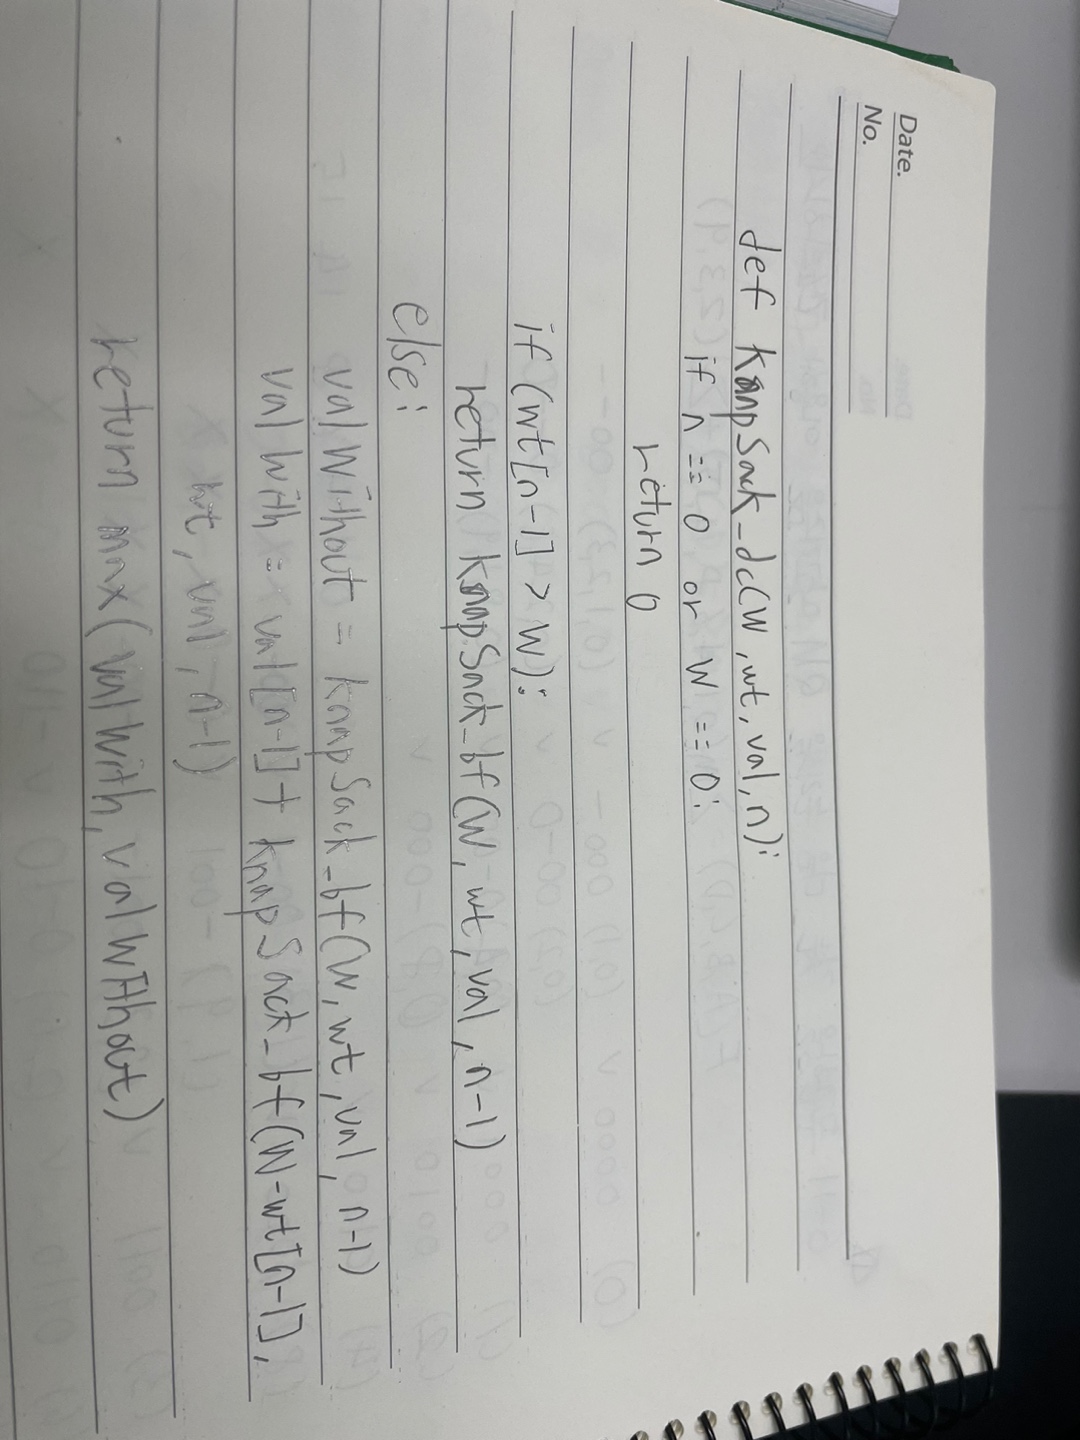 Date.
No.
def knapSack_dc(W, wt, val, n):
if n == 0 or W == 0:
return 0
if (wt[n-1] > W):
return knapSack_bf(W, wt, val, n-1)
else:
valWithout = knapSack_bf(W, wt, val, n-1)
valWith = val[n-1] + knapSack_bf(W-wt[n-1],
wt, val, n-1)
return max(valWith, valWithout)